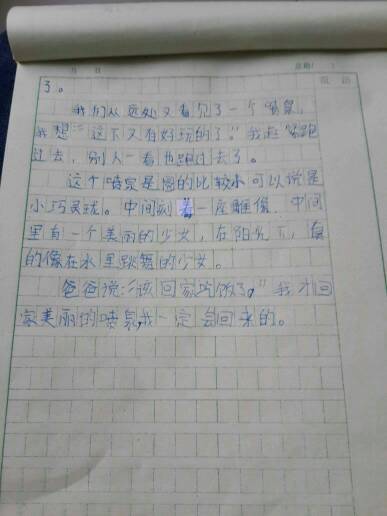 了。
我们从远处又看见了一个喷泉,
我想:"这下又有好玩的了。"我赶紧跑
过去,别人一看也跑过去了。
这个喷泉是圆的比较小可以说是
小巧灵珑。中间刻着一座雕像,中间
里有一个美丽的少女,在阳光下,真
的像在水里跳舞的少女。
爸爸说:"该回家吃饭了。"我才回
家美丽的喷泉,我一定会回来的。